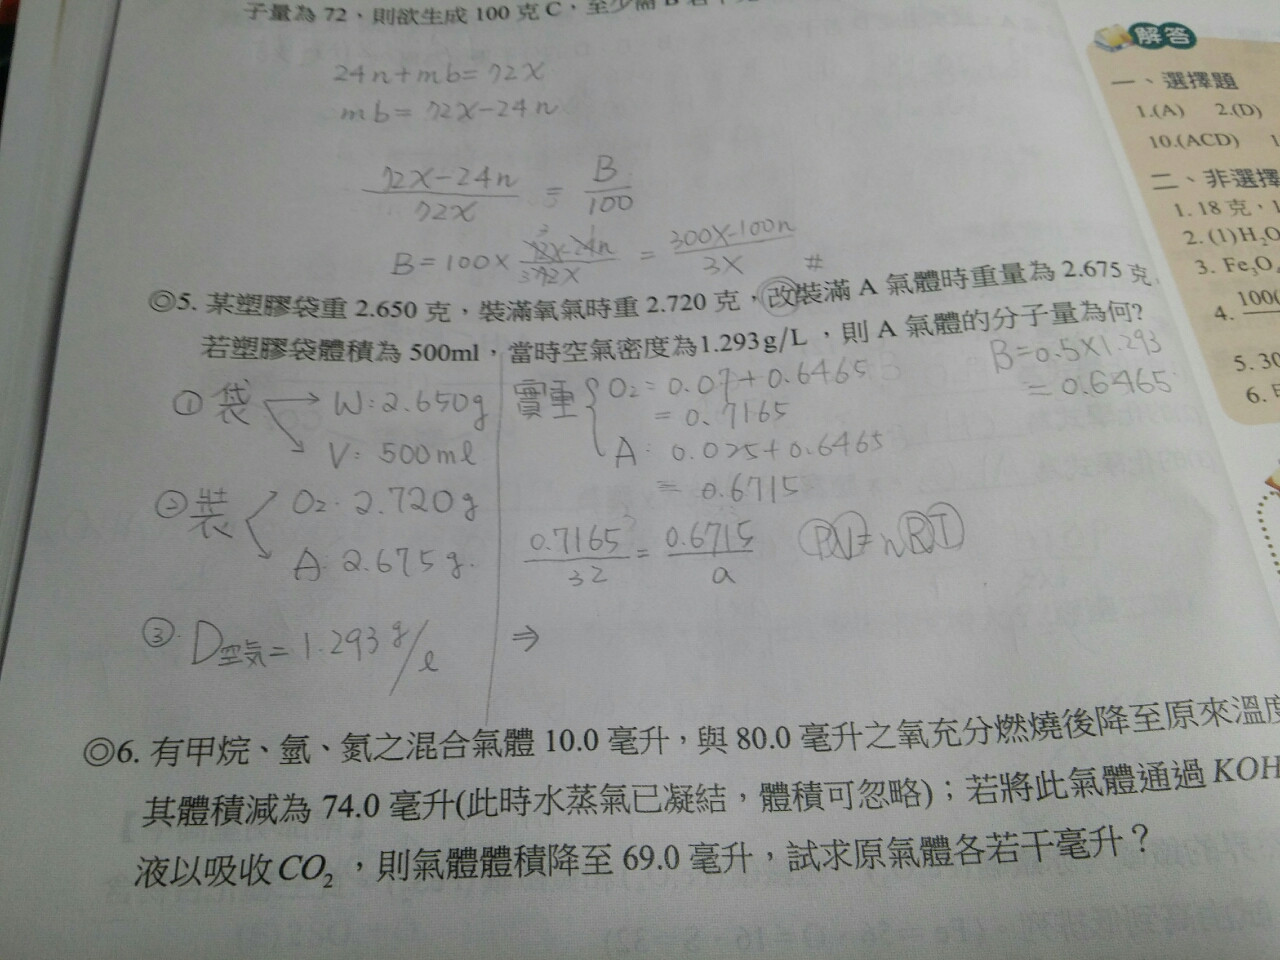 子量為 72，則欲生成 100 克 C，至少需 B
24n+mb=72X
mb=72X-24n
72X-24n / 72X = B / 100
B=100× 72X-24n / 72X = 300X-100n / 3X #
◎5. 某塑膠袋重 2.650 克，裝滿氧氣時重 2.720 克，改裝滿 A 氣體時重量為 2.675 克，
若塑膠袋體積為 500ml，當時空氣密度為1.293g/L，則 A 氣體的分子量為何?
① 袋 → W:2.650g
V: 500ml
② 裝 O2: 2.720g
A: 2.675g.
③. D空気=1.293g/l
實重 O2=0.07+0.6465
=0.7165
A: 0.025+0.6465
=0.6715
0.7165 / 32 = 0.6715 / a
PV=nRT
⇒
B=0.5×1.293
=0.6465
◎6. 有甲烷、氫、氮之混合氣體 10.0 毫升，與 80.0 毫升之氧充分燃燒後降至原來溫度
其體積減為 74.0 毫升(此時水蒸氣已凝結，體積可忽略)；若將此氣體通過 KOH
液以吸收CO2，則氣體體積降至 69.0 毫升，試求原氣體各若干毫升？
解答
一、選擇題
1.(A) 2.(D)
10.(ACD) 1
二、非選擇
1. 18 克，1
2. (1)H2O
3. Fe3O4
4. 100
5. 30
6.